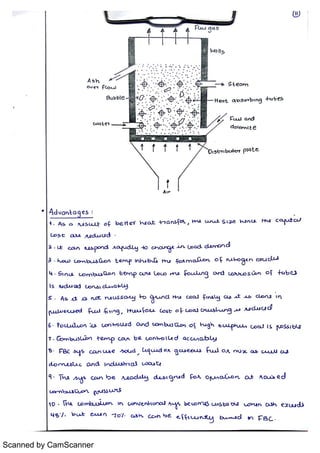 11
Flue gas
walls
Ash
over flow
Steam
Bubble
Heat absorbing tubes
water
Fuel and
dolomite
Distributor plate
Air
* Advantages :
1. As a result of better heat transfer, the unit size hence the capital
cost are reduced .
2. It can respond rapidly to change in load demand
3. Low combustion temp inhibits the formation of nitrogen oxides
4. Since combustion temp are low the fouling and corrosion of tubes
is reduced considerably
5. As it is not necessary to grind the coal finely as it is done in
pulverised fuel firing, therefore cost of coal crushing is reduced
6. Pollution is controlled and combustion of high sulphur coal is possible
7. Combustion temp can be controlled accurately
8. FBC sys can use solid, liquid or gaseous fuel or mix as well as
domestic and industrial waste
9. The sys can be readily designed for operation at raised
combustion pressure
10. The combustion in conventional sys becomes unstable when ash exceeds
48%. but even 70% ash can be efficiently burned in FBC.
Scanned by CamScanner